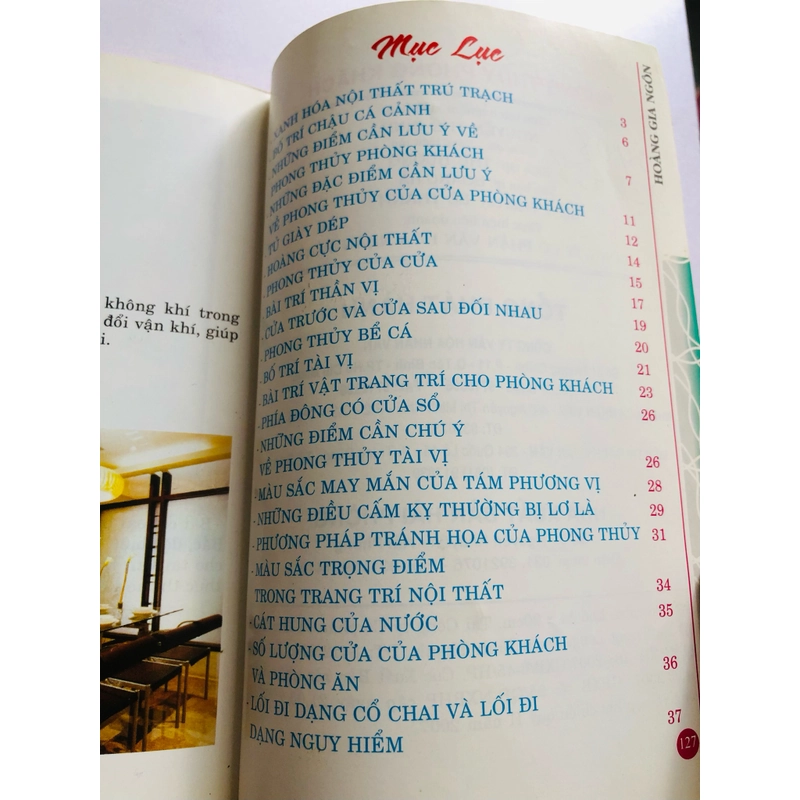 không khí trong
đổi vận khí, giúp
i.
Mục Lục
XANH HÓA NỘI THẤT TRÚ TRẠCH 3
BỐ TRÍ CHẬU CÁ CẢNH 6
- NHỮNG ĐIỂM CẦN LƯU Ý VỀ
PHONG THỦY PHÒNG KHÁCH 7
- NHỮNG ĐẶC ĐIỂM CẦN LƯU Ý
VỀ PHONG THỦY CỦA CỬA PHÒNG KHÁCH 11
TỦ GIÀY DÉP 12
- HOÀNG CỰC NỘI THẤT 14
- PHONG THỦY CỦA CỬA 15
- BÀI TRÍ THẦN VỊ 17
- CỬA TRƯỚC VÀ CỬA SAU ĐỐI NHAU 19
- PHONG THỦY BỂ CÁ 20
- BỐ TRÍ TÀI VỊ 21
- BÀI TRÍ VẬT TRANG TRÍ CHO PHÒNG KHÁCH 23
- PHÍA ĐÔNG CÓ CỬA SỔ 26
- NHỮNG ĐIỂM CẦN CHÚ Ý
VỀ PHONG THỦY TÀI VỊ 26
- MÀU SẮC MAY MẮN CỦA TÁM PHƯƠNG VỊ 28
- NHỮNG ĐIỀU CẤM KỴ THƯỜNG BỊ LƠ LÀ 29
- PHƯƠNG PHÁP TRÁNH HỌA CỦA PHONG THỦY 31
- MÀU SẮC TRỌNG ĐIỂM
TRONG TRANG TRÍ NỘI THẤT 34
- CÁT HUNG CỦA NƯỚC 35
- SỐ LƯỢNG CỬA CỦA PHÒNG KHÁCH
VÀ PHÒNG ĂN 36
- LỐI ĐI DẠNG CỔ CHAI VÀ LỐI ĐI
DẠNG NGUY HIỂM 37
HOÀNG GIA NGÔN
127